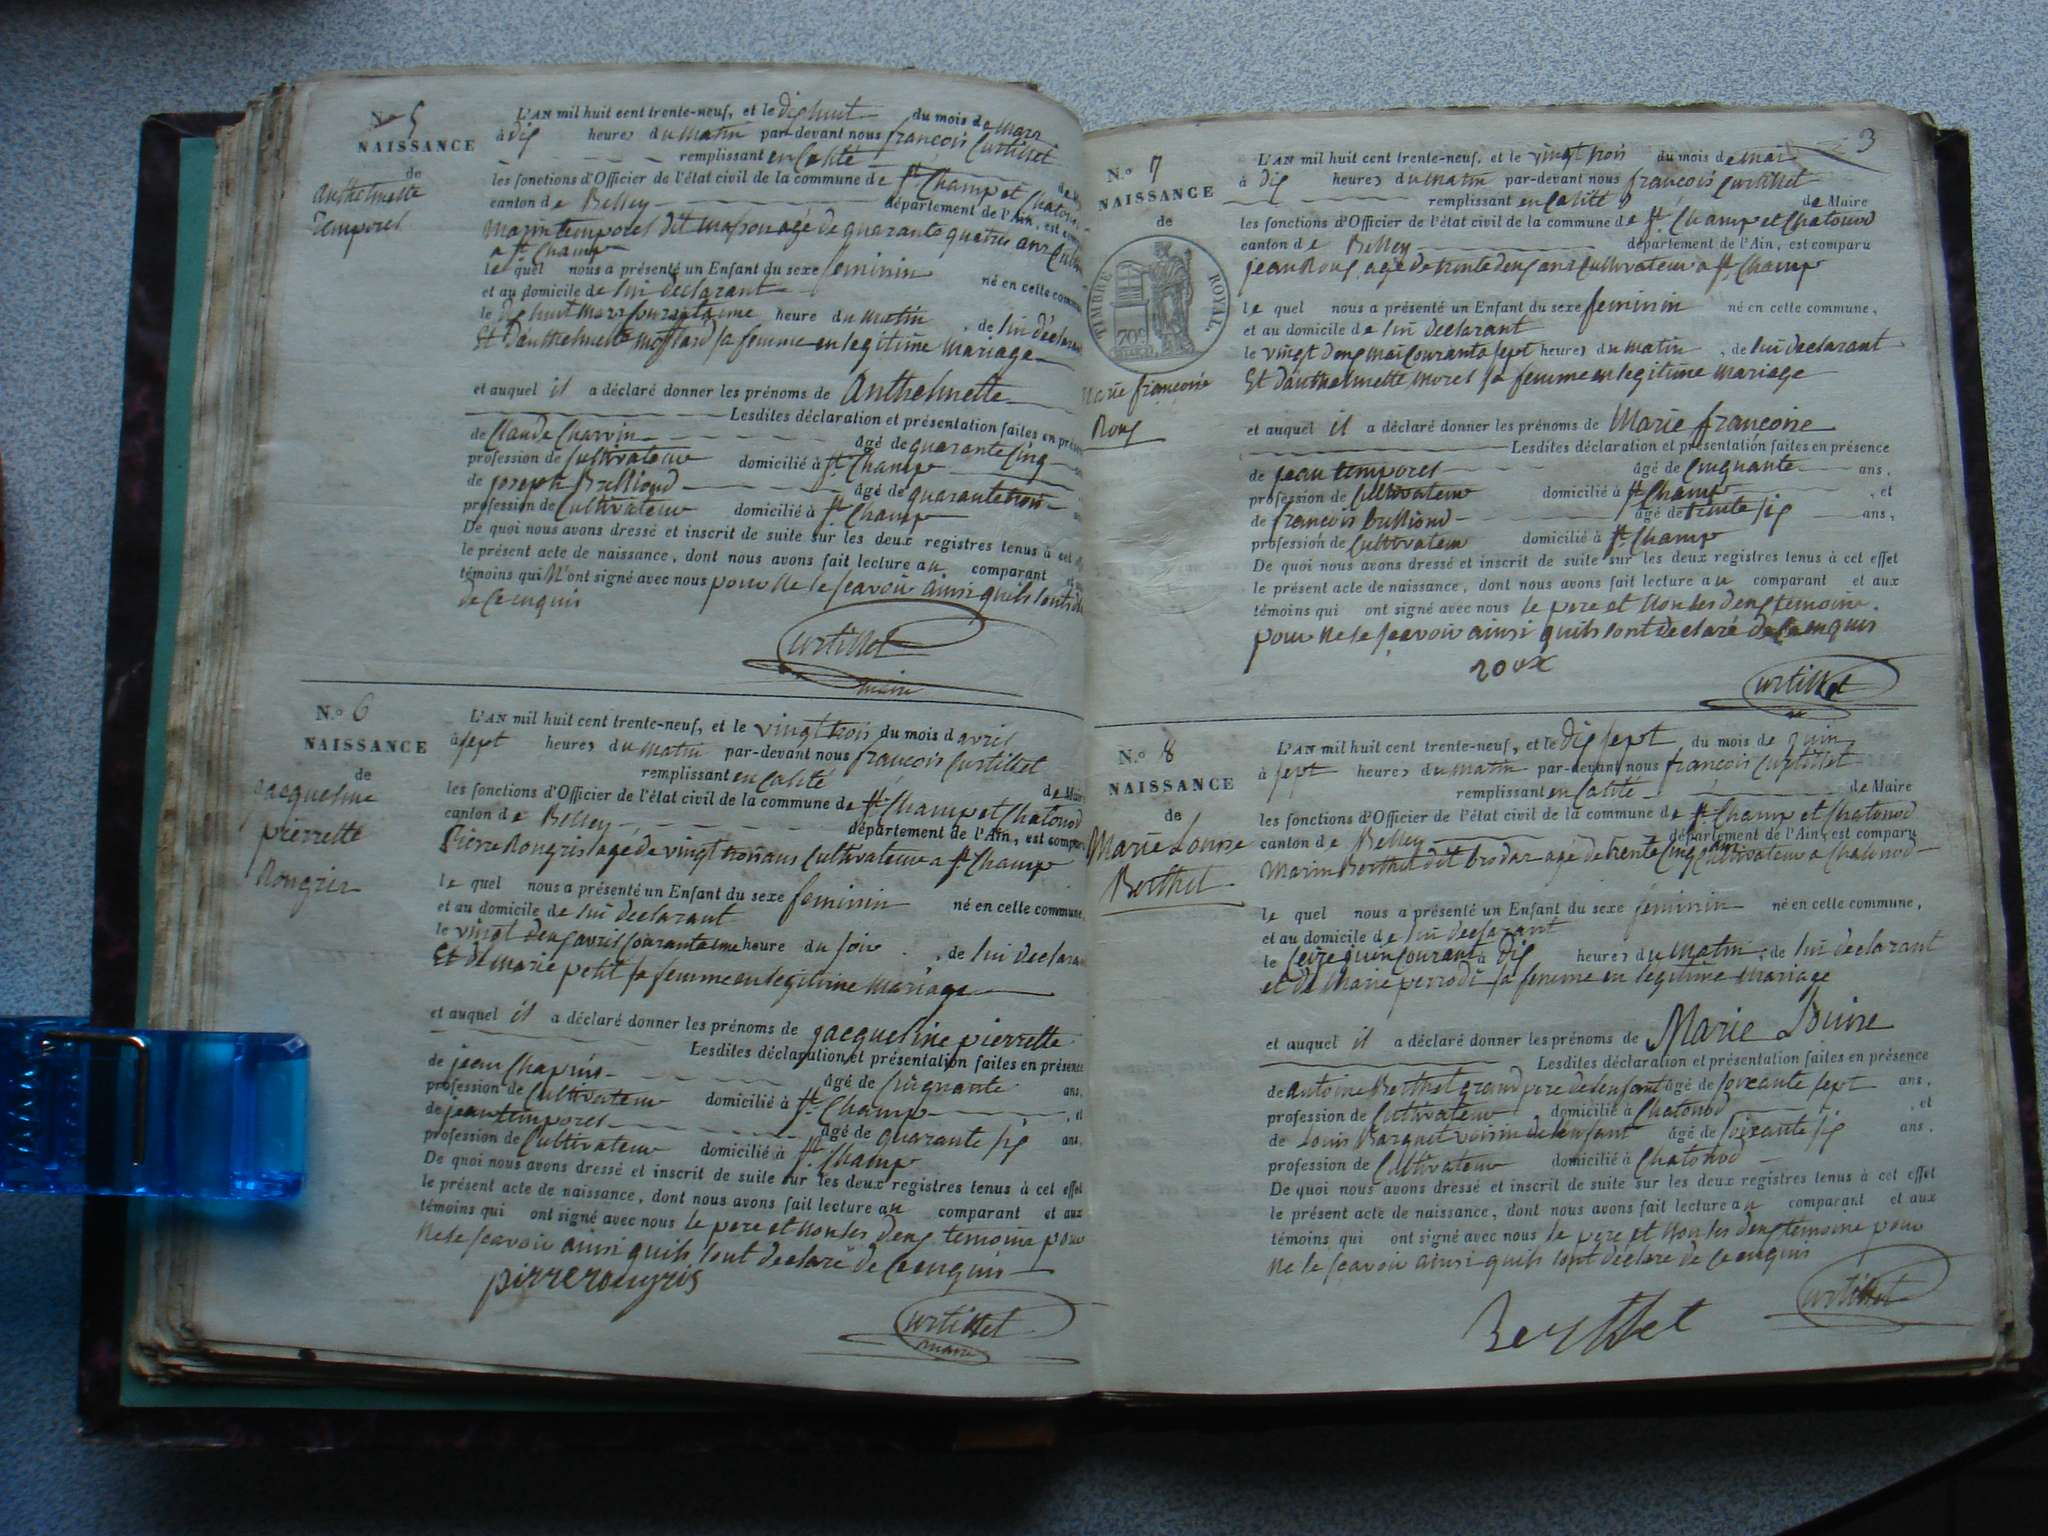 N.o 5
NAISSANCE
de
anthelmette
Temporel
L'AN mil huit cent trente-neuf, et le dighuit du mois de mars
à dig heures du matin par-devant nous françois Curtillet
remplissant en Calité
les fonctions d'Officier de l'état civil de la commune de St. Champ et Chatonod
canton de Belley département de l'Ain, est
Marin temporel dit masson agé de quarante quatre ans
a St. Champ
le quel nous a présenté un Enfant du sexe feminin né en celle commune
et au domicile de lui declarant
le dighuit mars Courant a une heure du matin, de lui déclarant
Et danthelmette mollard sa femme en legitime mariage
et auquel il a déclaré donner les prénoms de Anthelmette
Lesdites déclaration et présentation faites en
de Claude Charvin âgé de quarante Cinq
profession de Cultivateur domicilié à St. Champ
de joseph Brilliond âgé de quarante trois
profession de Cultivateur domicilié à St. Champ
De quoi nous avons dressé et inscrit de suite sur les deux registres tenus à cet
le présent acte de naissance, dont nous avons fait lecture au comparant et
témoins qui N'ont signé avec nous pour ne le scavoir ainsi quils lont
de Ce enquis
Curtillet
maire
N.o 6
NAISSANCE
de
jacqueline
pierrette
Rongris
L'AN mil huit cent trente-neuf, et le vingt trois du mois d avril
à sept heures du matin par-devant nous françois Curtillet
remplissant en Calité de Maire
les fonctions d'Officier de l'état civil de la commune de St. Champ et Chatonod
canton de Belley département de l'Ain, est comparu
Pierre Rongris agé de vingt trois ans Cultivateur a St. Champ
le quel nous a présenté un Enfant du sexe feminin né en celle commune,
et au domicile de lui declarant
le vingt deug avril Courant a une heure du soir, de lui declarant
Et de marie petit sa femme en legitime mariage
et auquel il a déclaré donner les prénoms de jacqueline pierrette
Lesdites déclaration et présentation faites en présence
de jean Chapuis âgé de Cinquante ans,
profession de Cultivateur domicilié à St. Champ, et
de jean temporel âgé de quarante sig ans,
profession de Cultivateur domicilié à St. Champ
De quoi nous avons dressé et inscrit de suite sur les deux registres tenus à cet effet
le présent acte de naissance, dont nous avons fait lecture au comparant et aux
témoins qui ont signé avec nous le pere et non les deug temoins pour
ne le scavoir ainsi quils lont declaré de Ce enquis
pirrerongris
Curtillet
maire
3
N.o 7
NAISSANCE
de
TIMBRE ROYAL
70c
Marie françoise
Roug
L'AN mil huit cent trente-neuf, et le vingt trois du mois de mai
à dig heures du matin par-devant nous françois Curtillet
remplissant en Calité de Maire
les fonctions d'Officier de l'état civil de la commune de St. Champ et Chatonod
canton de Belley département de l'Ain, est comparu
jean Roug agé de trente deug ans Cultivateur a St. Champ
le quel nous a présenté un Enfant du sexe feminin né en celle commune,
et au domicile de lui declarant
le vingt deug mai Courant a sept heures du matin, de lui declarant
Et danthelmette morel sa femme en legitime mariage
et auquel il a déclaré donner les prénoms de Marie françoise
Lesdites déclaration et présentation faites en présence
de jean temporel âgé de Cinquante ans,
profession de Cultivateur domicilié à St. Champ, et
de françois brilliond âgé de trente sig ans,
profession de Cultivateur domicilié à St. Champ
De quoi nous avons dressé et inscrit de suite sur les deux registres tenus à cet effet
le présent acte de naissance, dont nous avons fait lecture au comparant et aux
témoins qui ont signé avec nous le pere et non les deug temoins.
pour ne le scavoir ainsi quils lont declaré de Ce enquis
roux
Curtillet
N.o 8
NAISSANCE
de
Marie Louise
Berthet
L'AN mil huit cent trente-neuf, et le dig sept du mois de juin
à sept heures du matin par-devant nous françois Curtillet
remplissant en Calité de Maire
les fonctions d'Officier de l'état civil de la commune de St. Champ et Chatonod
canton de Belley département de l'Ain, est comparu
Marin Berthet dit brodar agé de trente Cinq ans Cultivateur a Chatonod
le quel nous a présenté un Enfant du sexe feminin né en celle commune,
et au domicile de lui declarant
le seize juin Courant à dig heures du matin, de lui declarant
et de Marie perrodi sa femme en legitime mariage
et auquel il a déclaré donner les prénoms de Marie Louise
Lesdites déclaration et présentation faites en présence
de antoine Berthet grand pere de lenfant âgé de soixante sept ans,
profession de Cultivateur domicilié à Chatonod, et
de Louis Barquet voisin de lenfant âgé de soixante sig ans,
profession de Cultivateur domicilié à Chatonod
De quoi nous avons dressé et inscrit de suite sur les deux registres tenus à cet effet
le présent acte de naissance, dont nous avons fait lecture au comparant et aux
témoins qui ont signé avec nous le pere et non les deug temoins pour
ne le scavoir ainsi quils lont déclaré de Ce enquis
Berthet
Curtillet